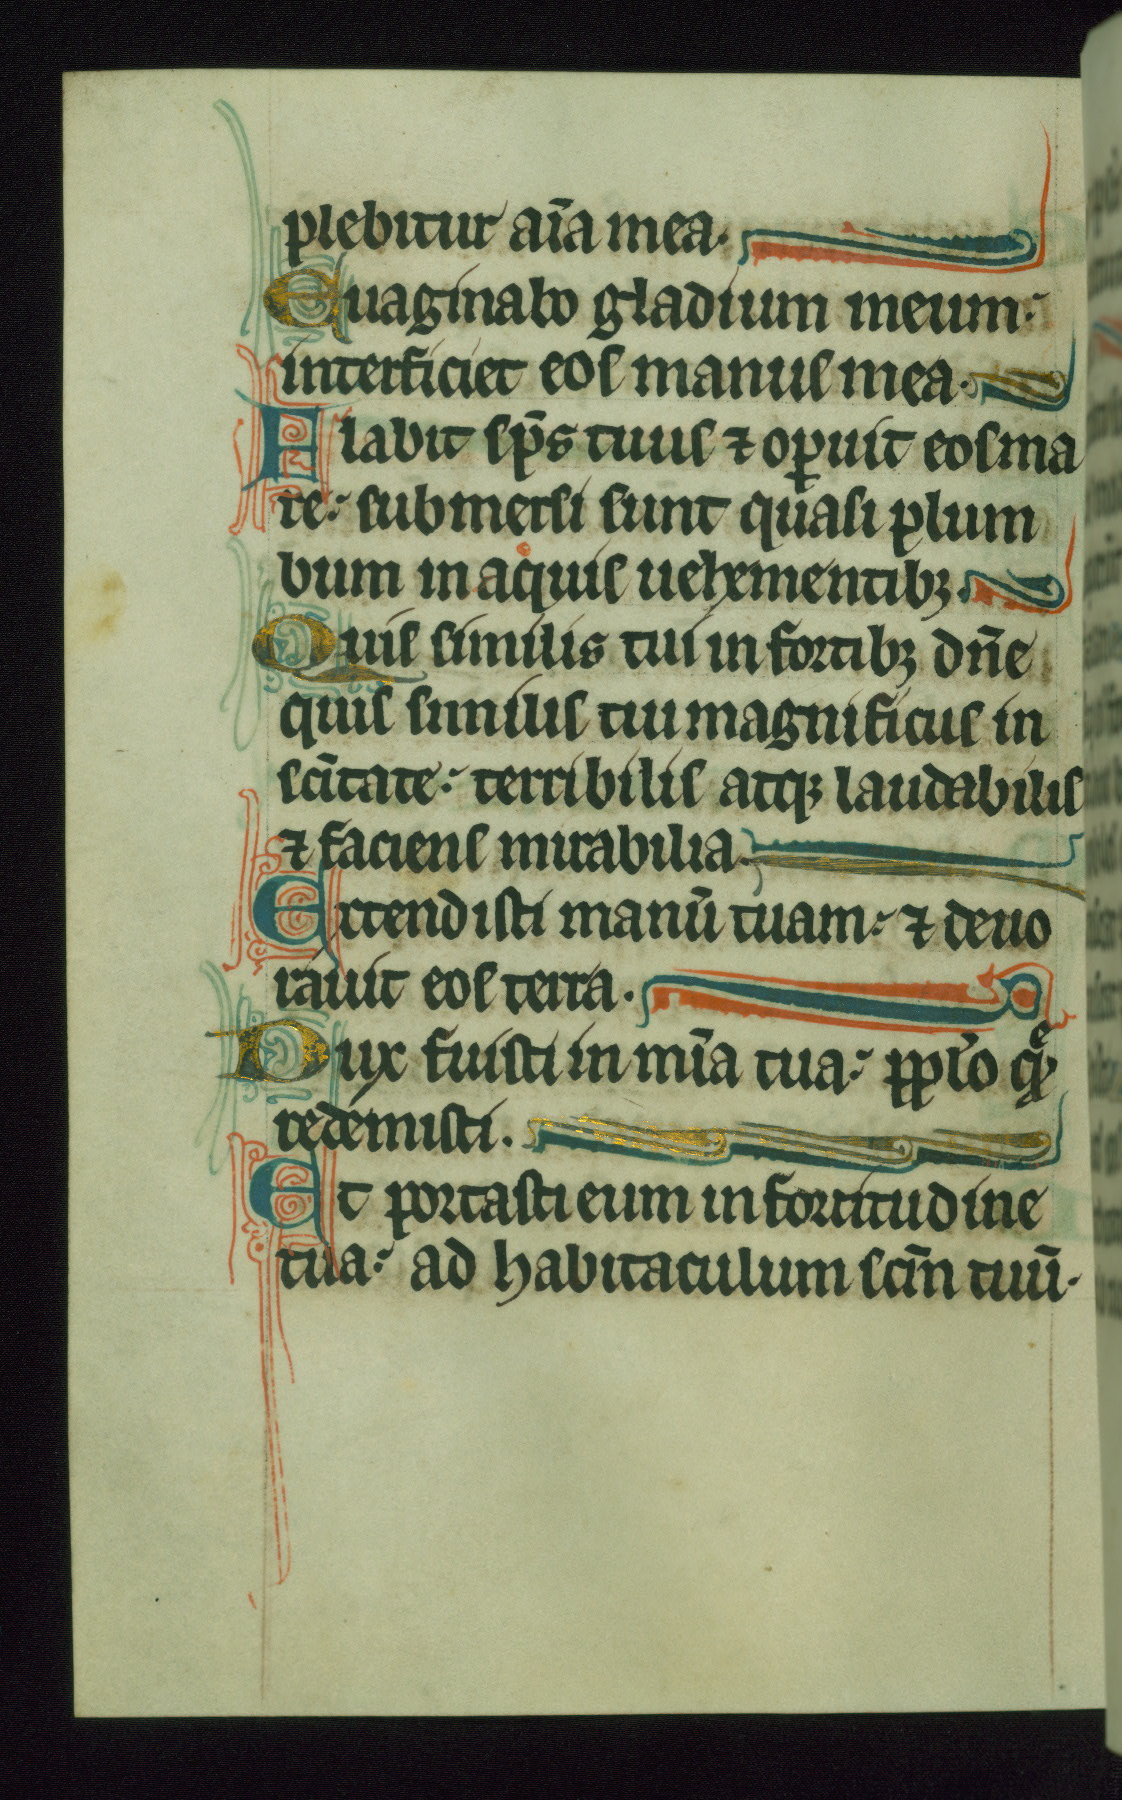 plebitur aīa mea.
Euaginabo gladium meum:
interficiet eos manus mea.
Flabit sp̄s tuus ⁊ oꝑuit eos ma
re: submersi sunt quasi plum
bum in aquis uehementibꝫ.
Quis similis tui in fortibꝫ dn̄e
quis similis tui magnificus in
scītate: terribilis atqꝫ laudabilis
⁊ faciens mirabilia.
Extendisti manū tuam: ⁊ deuo
rauit eos terra.
Dux fuisti in mīa tua: pp̄lo qͤꝫ
redemisti.
Et portasti eum in fortitudine
tua: ad habitaculum scm̄ tuū.